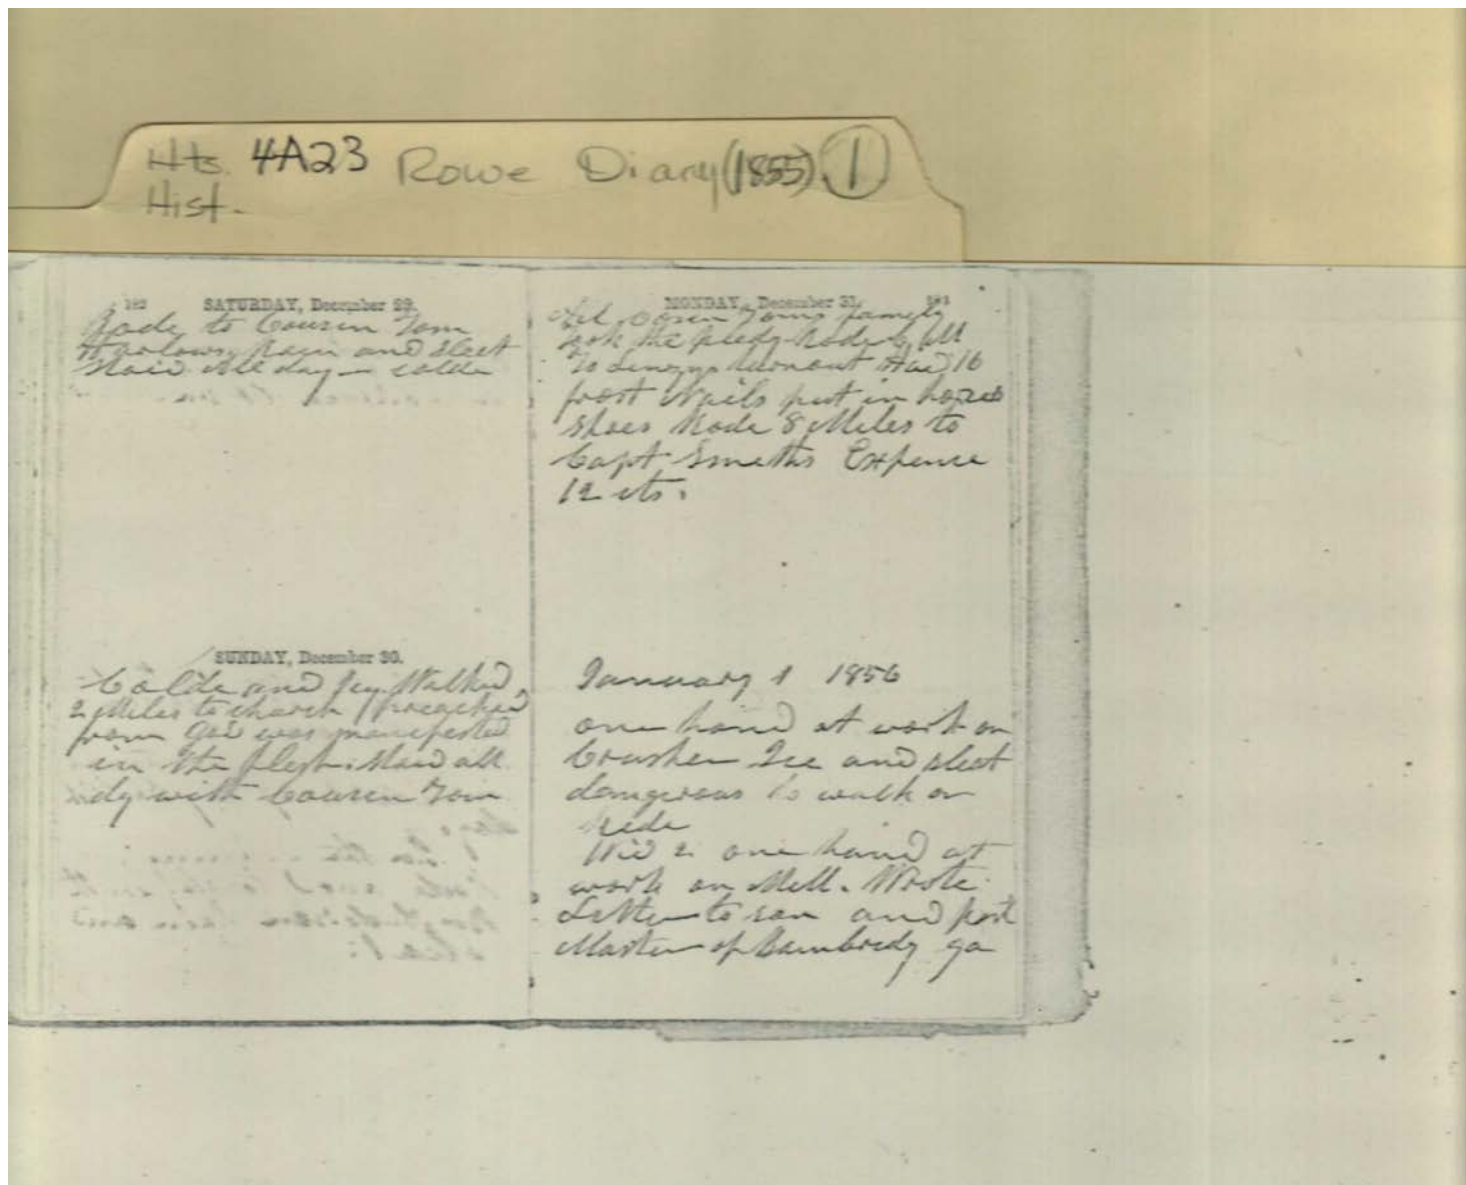 Hts. 4A23 Rowe Diary (1855) 1
Hist.
182 SATURDAY, December 29.
Rode to Cousin Tom
Harlows, Rain and Sleet
Staid All day — colde
SUNDAY, December 30.
Colde and Icy. Walked
2 Miles to church preached
from God was manifested
in the flesh. Staid all
dy with Cousin Tom
MONDAY, December 31. 183
Cosen Toms famely
Took the pledg. Rode
To turnout Had 16
frost Nails put in horses
Shoes Rode 8 Miles to
Capt Smeths Expence
12 cts.
January 1 1856
one hand at work on
Crusher Ice and sleet
dangerous to walk or
ride
Wed 2 one hand at
work on Mell. Wrote
Letter to son and post
Master of Bambredg ga